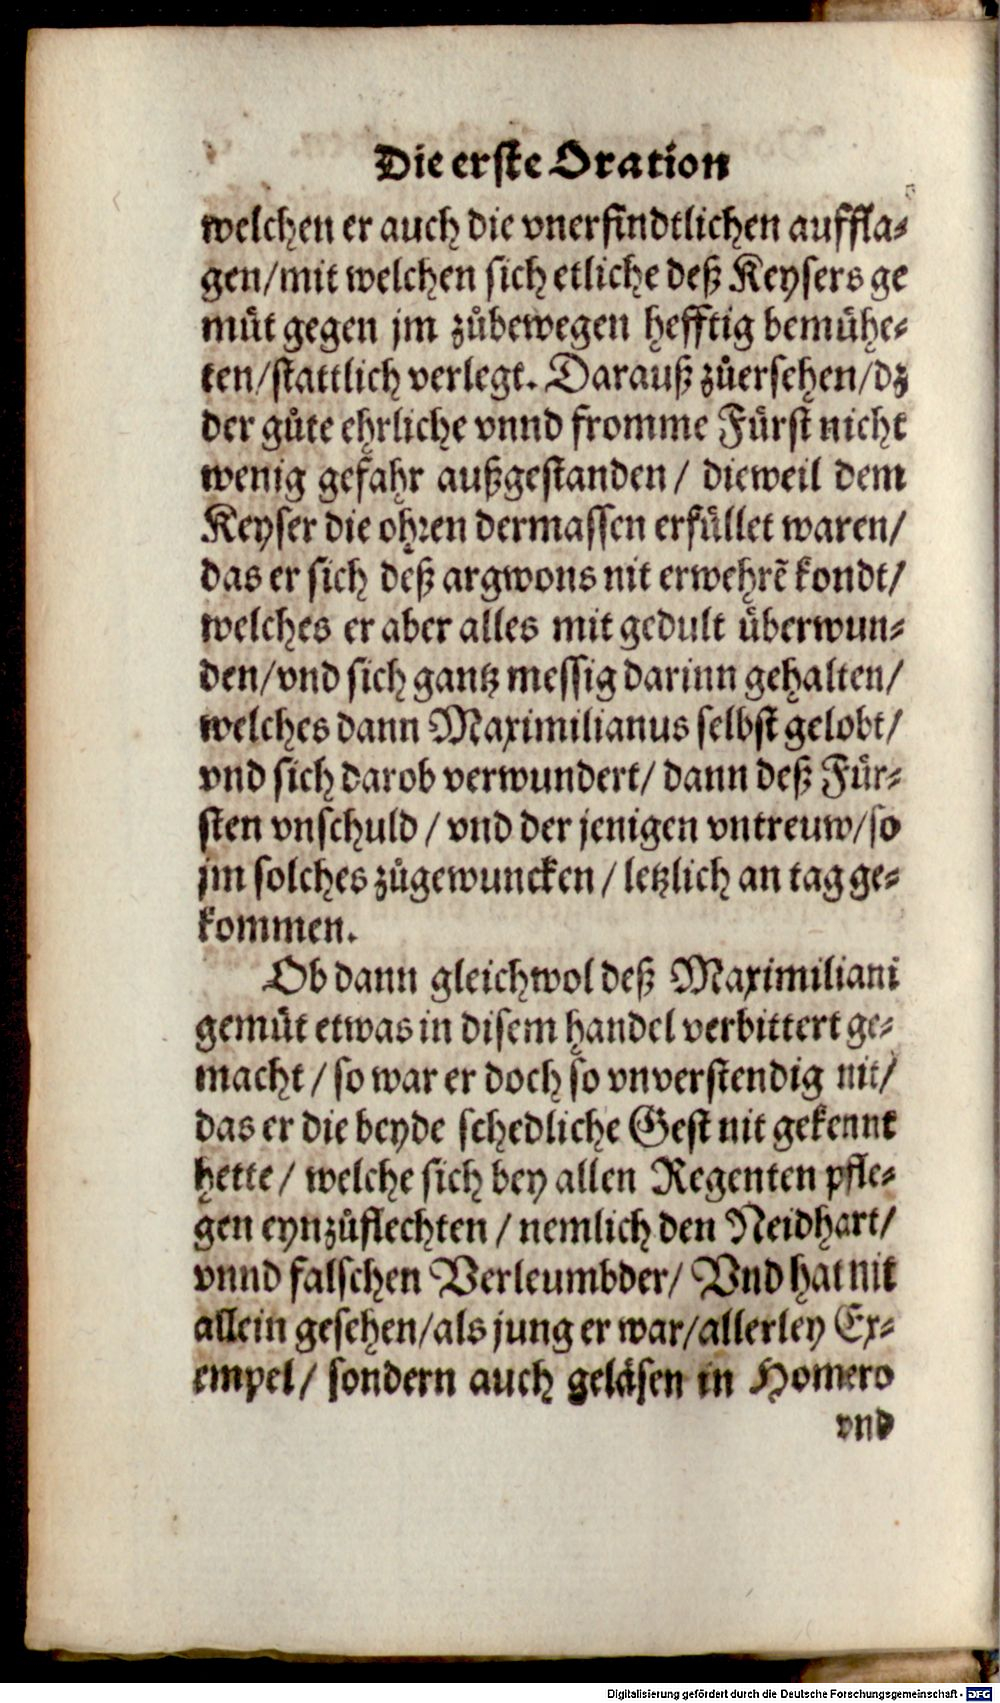 Die erste Oration
welchen er auch die vnerfindtlichen auffla⸗
gen/mit welchen sich etliche deß Keysers ge
muͤt gegen jm zuͦbewegen hefftig bemuͤhe⸗
ten/stattlich verlegt. Darauß zuͦersehen/dz
der guͦte ehrliche vnnd fromme Fuͤrst nicht
wenig gefahr außgestanden / dieweil dem
Keyser die ohren dermassen erfuͤllet waren/
das er sich deß argwons nit erwehrẽ kondt/
welches er aber alles mit gedult uͤberwun⸗
den/vnd sich gantz messig darinn gehalten/
welches dann Maximilianus selbst gelobt/
vnd sich darob verwundert/ dann deß Fuͤr⸗
sten vnschuld / vnd der jenigen vntreuw/so
jm solches zuͦgewuncken / letzlich an tag ge⸗
kommen.
Ob dann gleichwol deß Maximiliani
gemuͤt etwas in disem handel verbittert ge⸗
macht / so war er doch so vnverstendig nit/
das er die beyde schedliche Gest nit gekennt
hette / welche sich bey allen Regenten pfle⸗
gen eynzuͦflechten / nemlich den Neidhart/
vnnd falschen Verleumbder/ Vnd hat nit
allein gesehen/als jung er war/allerley Ex⸗
empel / sondern auch gelaͤsen in Homero
vnd
Digitalisierung gefördert durch die Deutsche Forschungsgemeinschaft - DFG